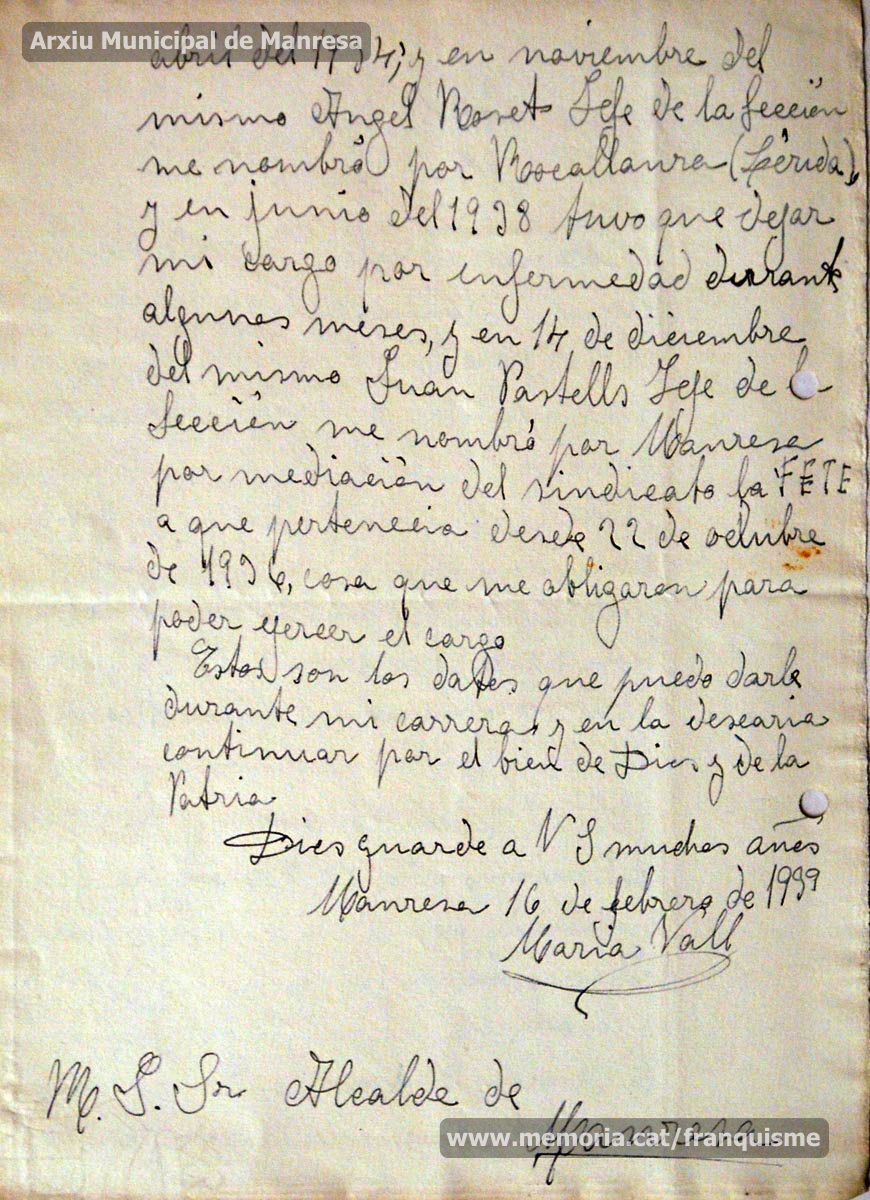 Arxiu Municipal de Manresa
abril del 1934; y en noviembre del
mismo Angel Roset Jefe de la Sección
me nombró por Rocallaura (Lérida),
y en junio del 1938 tuvo que dejar
mi cargo por enfermedad durante
algunos meses, y en 14 de diciembre
del mismo Juan Pastells Jefe de la
Sección me nombró por Manresa
por mediación del sindicato la FETE
a que pertenecia desde 22 de octubre
de 1936, cosa que me obligaron para
poder ejercer el cargo
Estos son los datos que puedo darle
durante mi carrera y en la desearia
continuar por el bien de Dios y de la
Patria
Dios guarde a V S muchos años
Manresa 16 de febrero de 1939
Maria Vall
M. S. Sr Alcalde de
Manresa
www.memoria.cat/franquisme